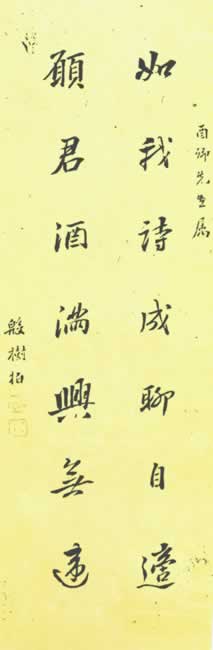 酉卿先生属
如我詩成聊自適
願君酒滿興無違
殷樹柏